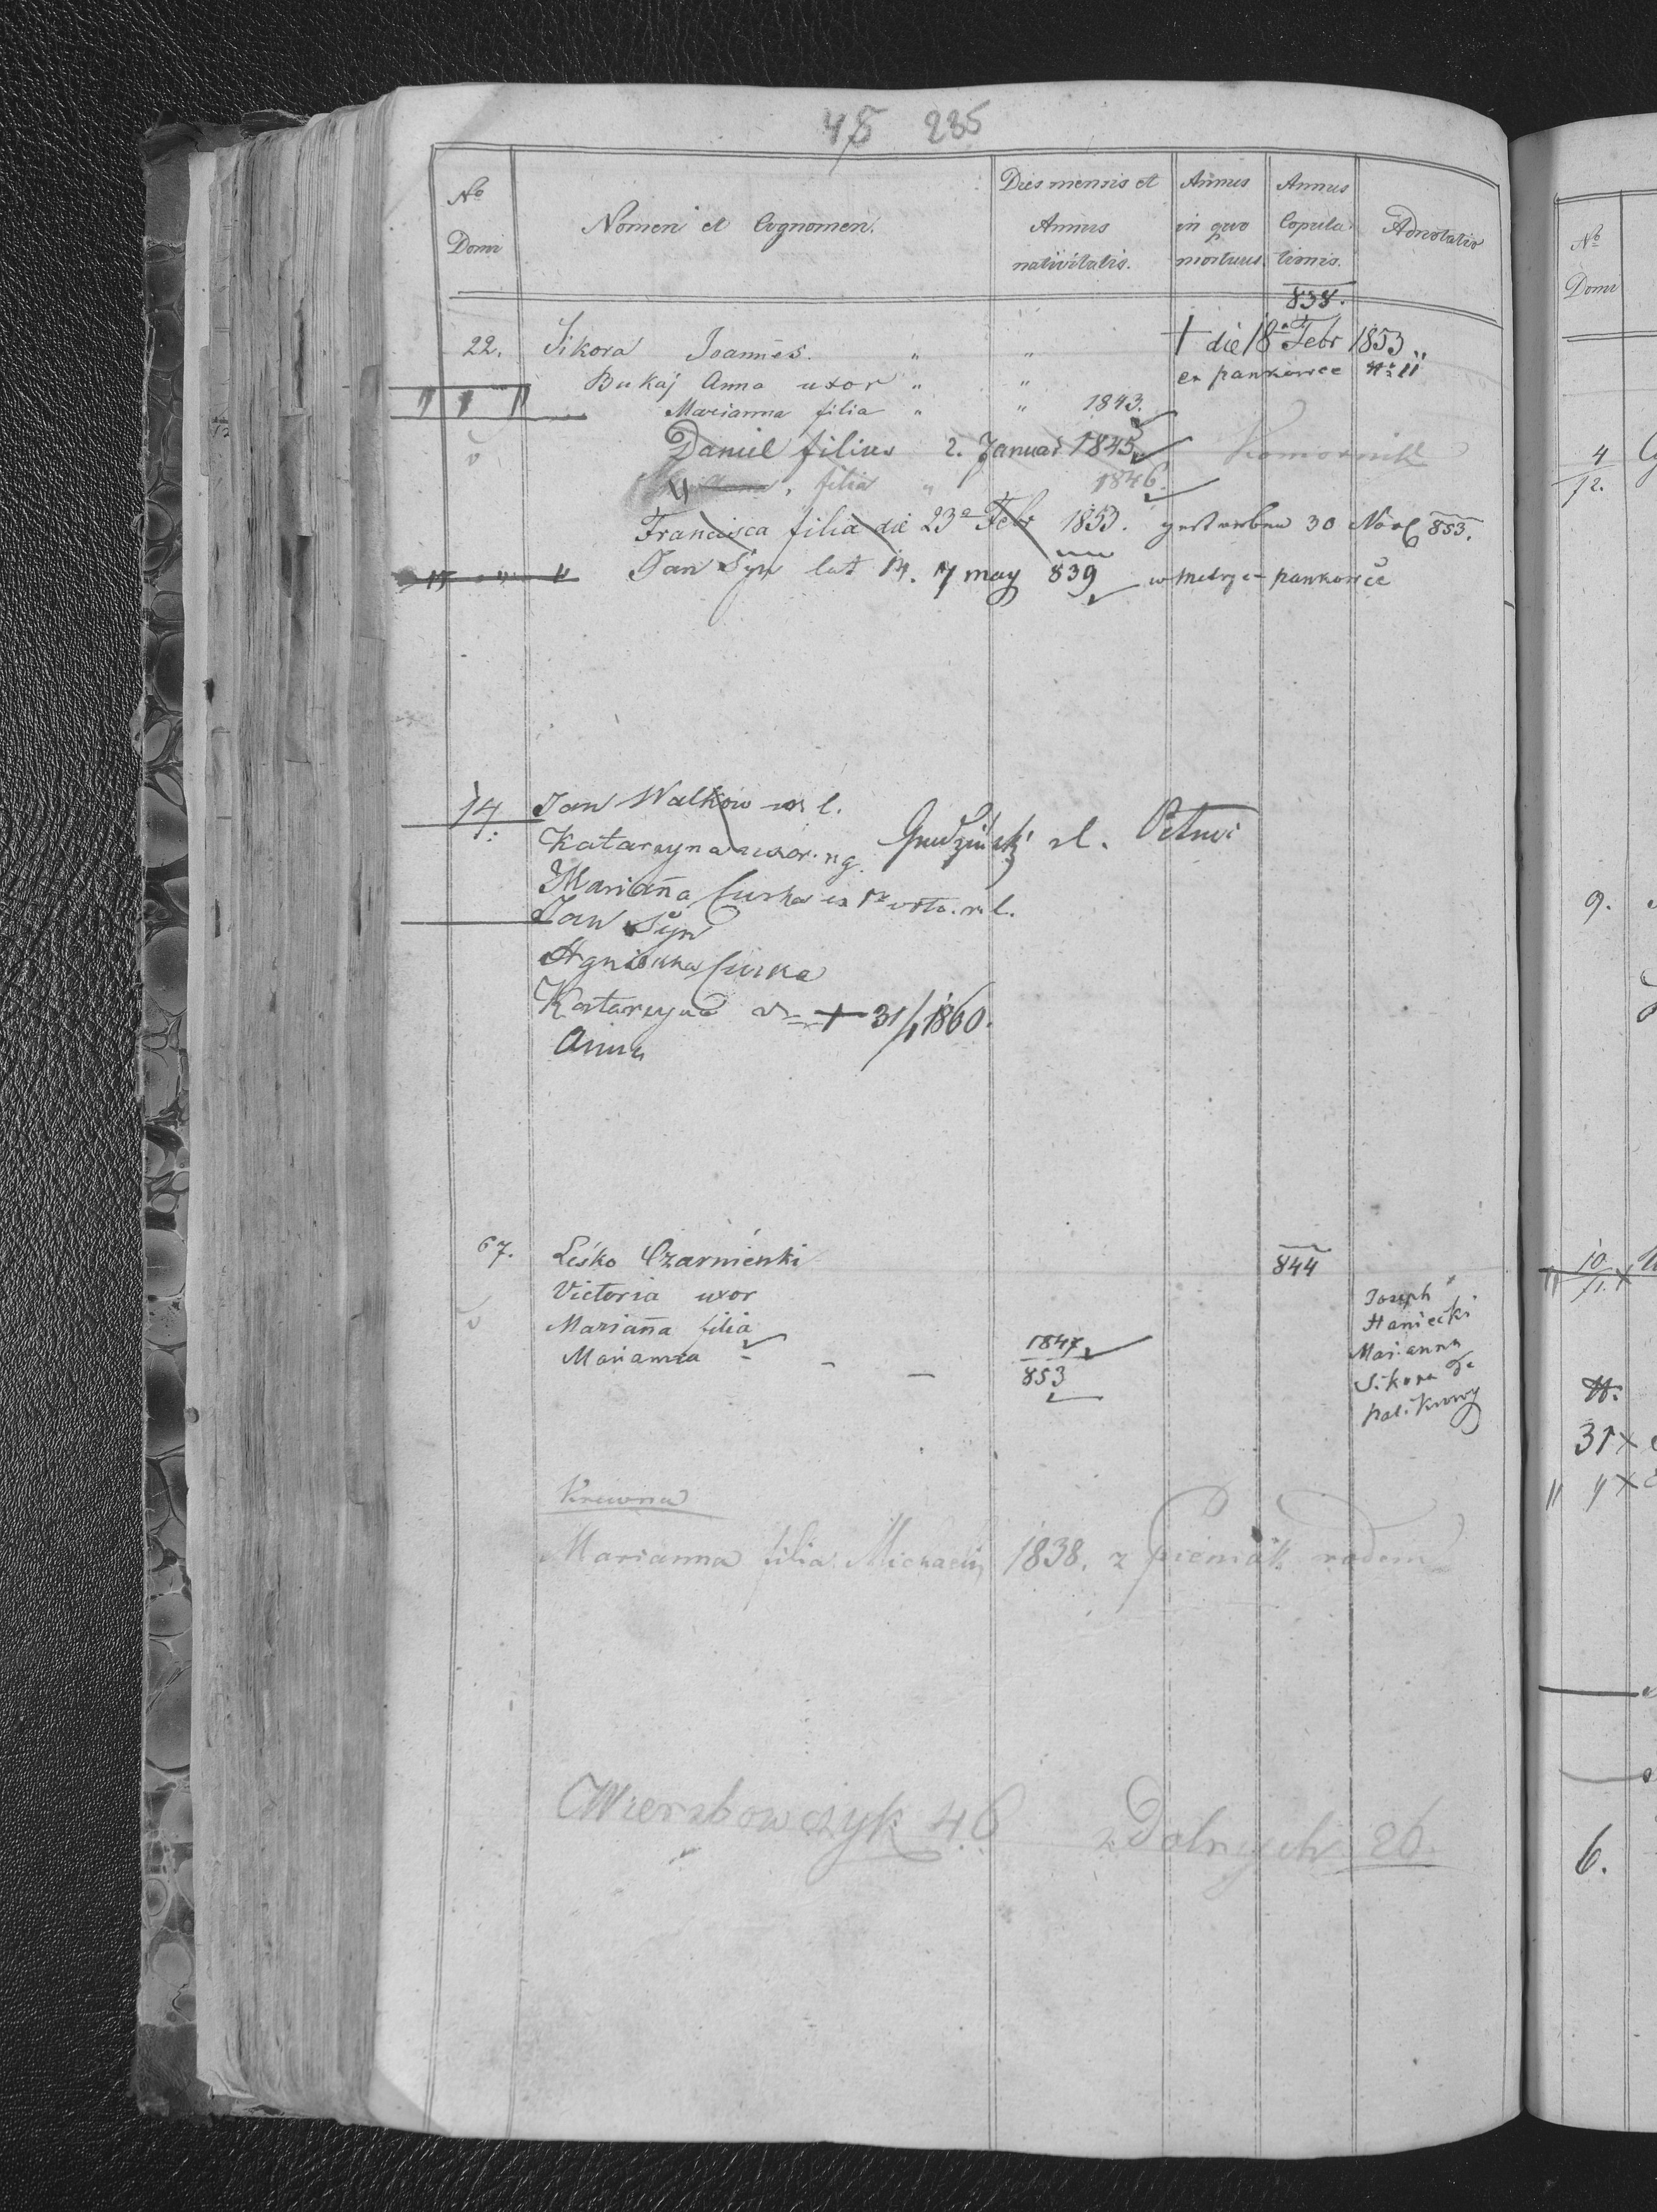 45 235
No Domi
Nomen et Cognomen.
Dies mensis et Annus nativitatis.
Annus in quo mortuus.
Annus Copulationis.
Adnotatio
838.
22. Sikora Joannes. " " † die 18a Febr 1853
Bukaj Anna uxor " " ex pankowce No 11
Marianna filia " " 1843.
Daniel filius 2. Januar 1845 Komornik
filia " 1846.
Francisca filia die 23a Febr 1853. gestorben 30 853.
Jan Syn lat 14. 7 may 839 w metryce pankowce
14 Jan Walkow r. l.
Katarzyna uxor. r g. r l.
Marianna Curka ex 1o voto. r. l.
Jan Syn
Agnieszka Curka
Katarzyna † 31/1 1860.
Anna
67. Leśko Czarnienki 844
Victoria uxor
Marianna filia 1847
Marianna - - - 853
Joseph
Haniecki
Marianna
Sikora
Krewna
Marianna filia Michaelis 1838. z Pieniak rodem
Wierzbowczyk 46 z Dolnych 26.
No
Domi
4
12.
9.
10
11.
31 x
6.